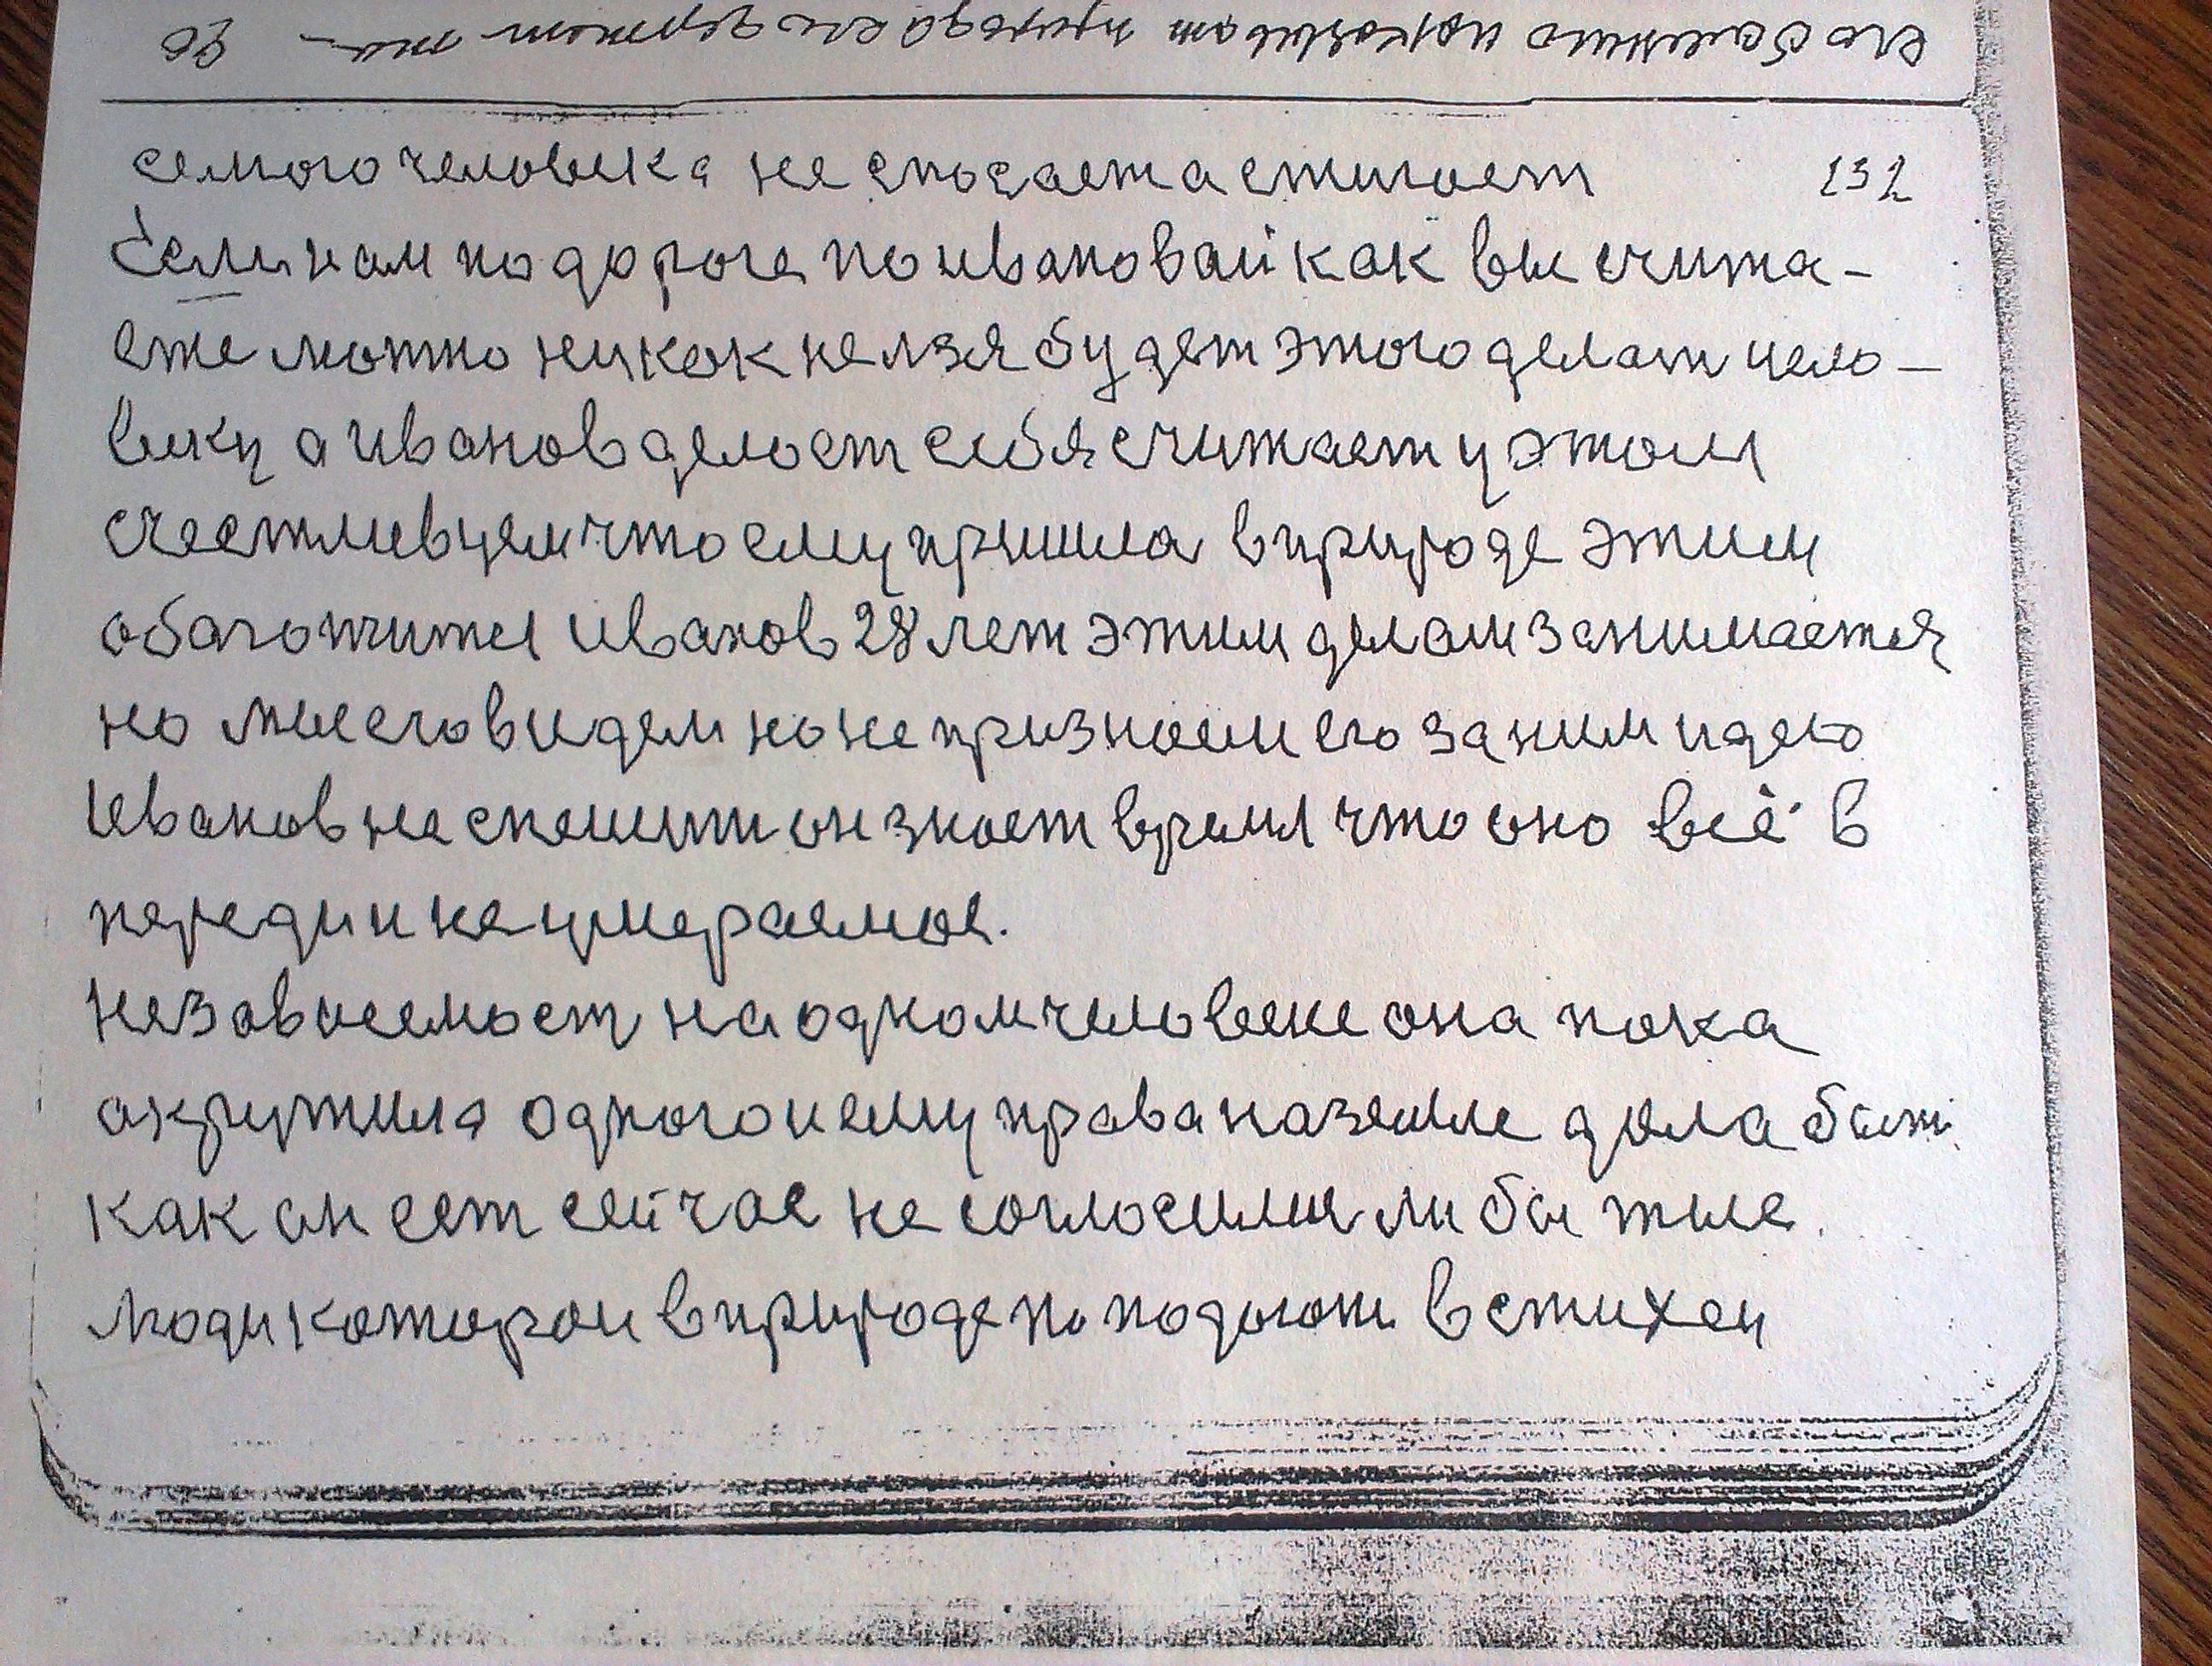 самого человека не спасает а стигает 132
Если нам по дороге по ивановай как вы счита-
ете можно никок нелзя будет этого делат чело-
веку а иванов делает себя считает у этом
счестливцем что ему пришла в природе этим
обаготится иванов 28 лет этим делам занимается
но мы его видем но не признаем его за ним идею
Иванов не спешит он знает время что оно всё в
переди и не умераемое.
Независемост на одном человеке она пока
акружила одного и ему права на земле дала быт
как он ест сейчас не согласилис ли бы тые
люди которои в природе поподают в стихеи